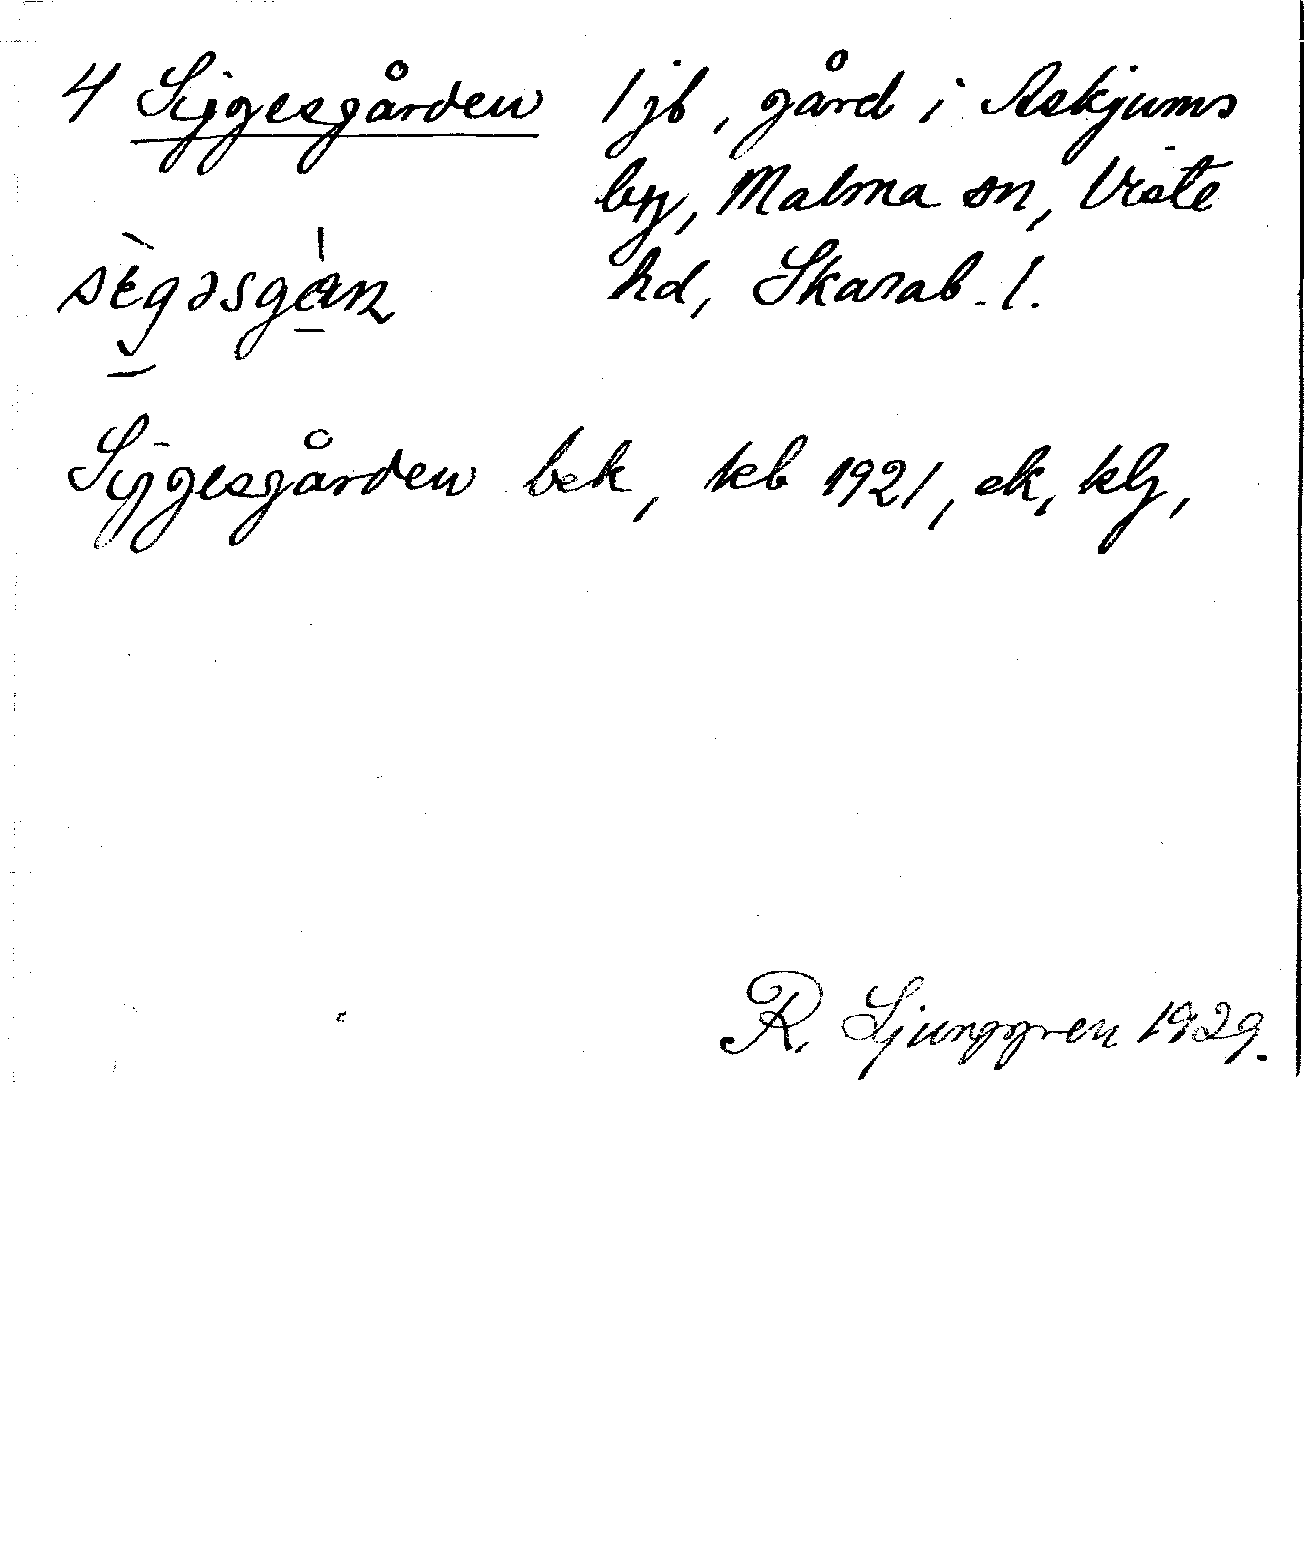 4 Syggesgården 1 jb, gård i Askjums
by, Malma sn, Viste
hd, Skarab. l.
Syggesgården bek, kb 1921, ek, kb,
R. Ljunggren 1929.